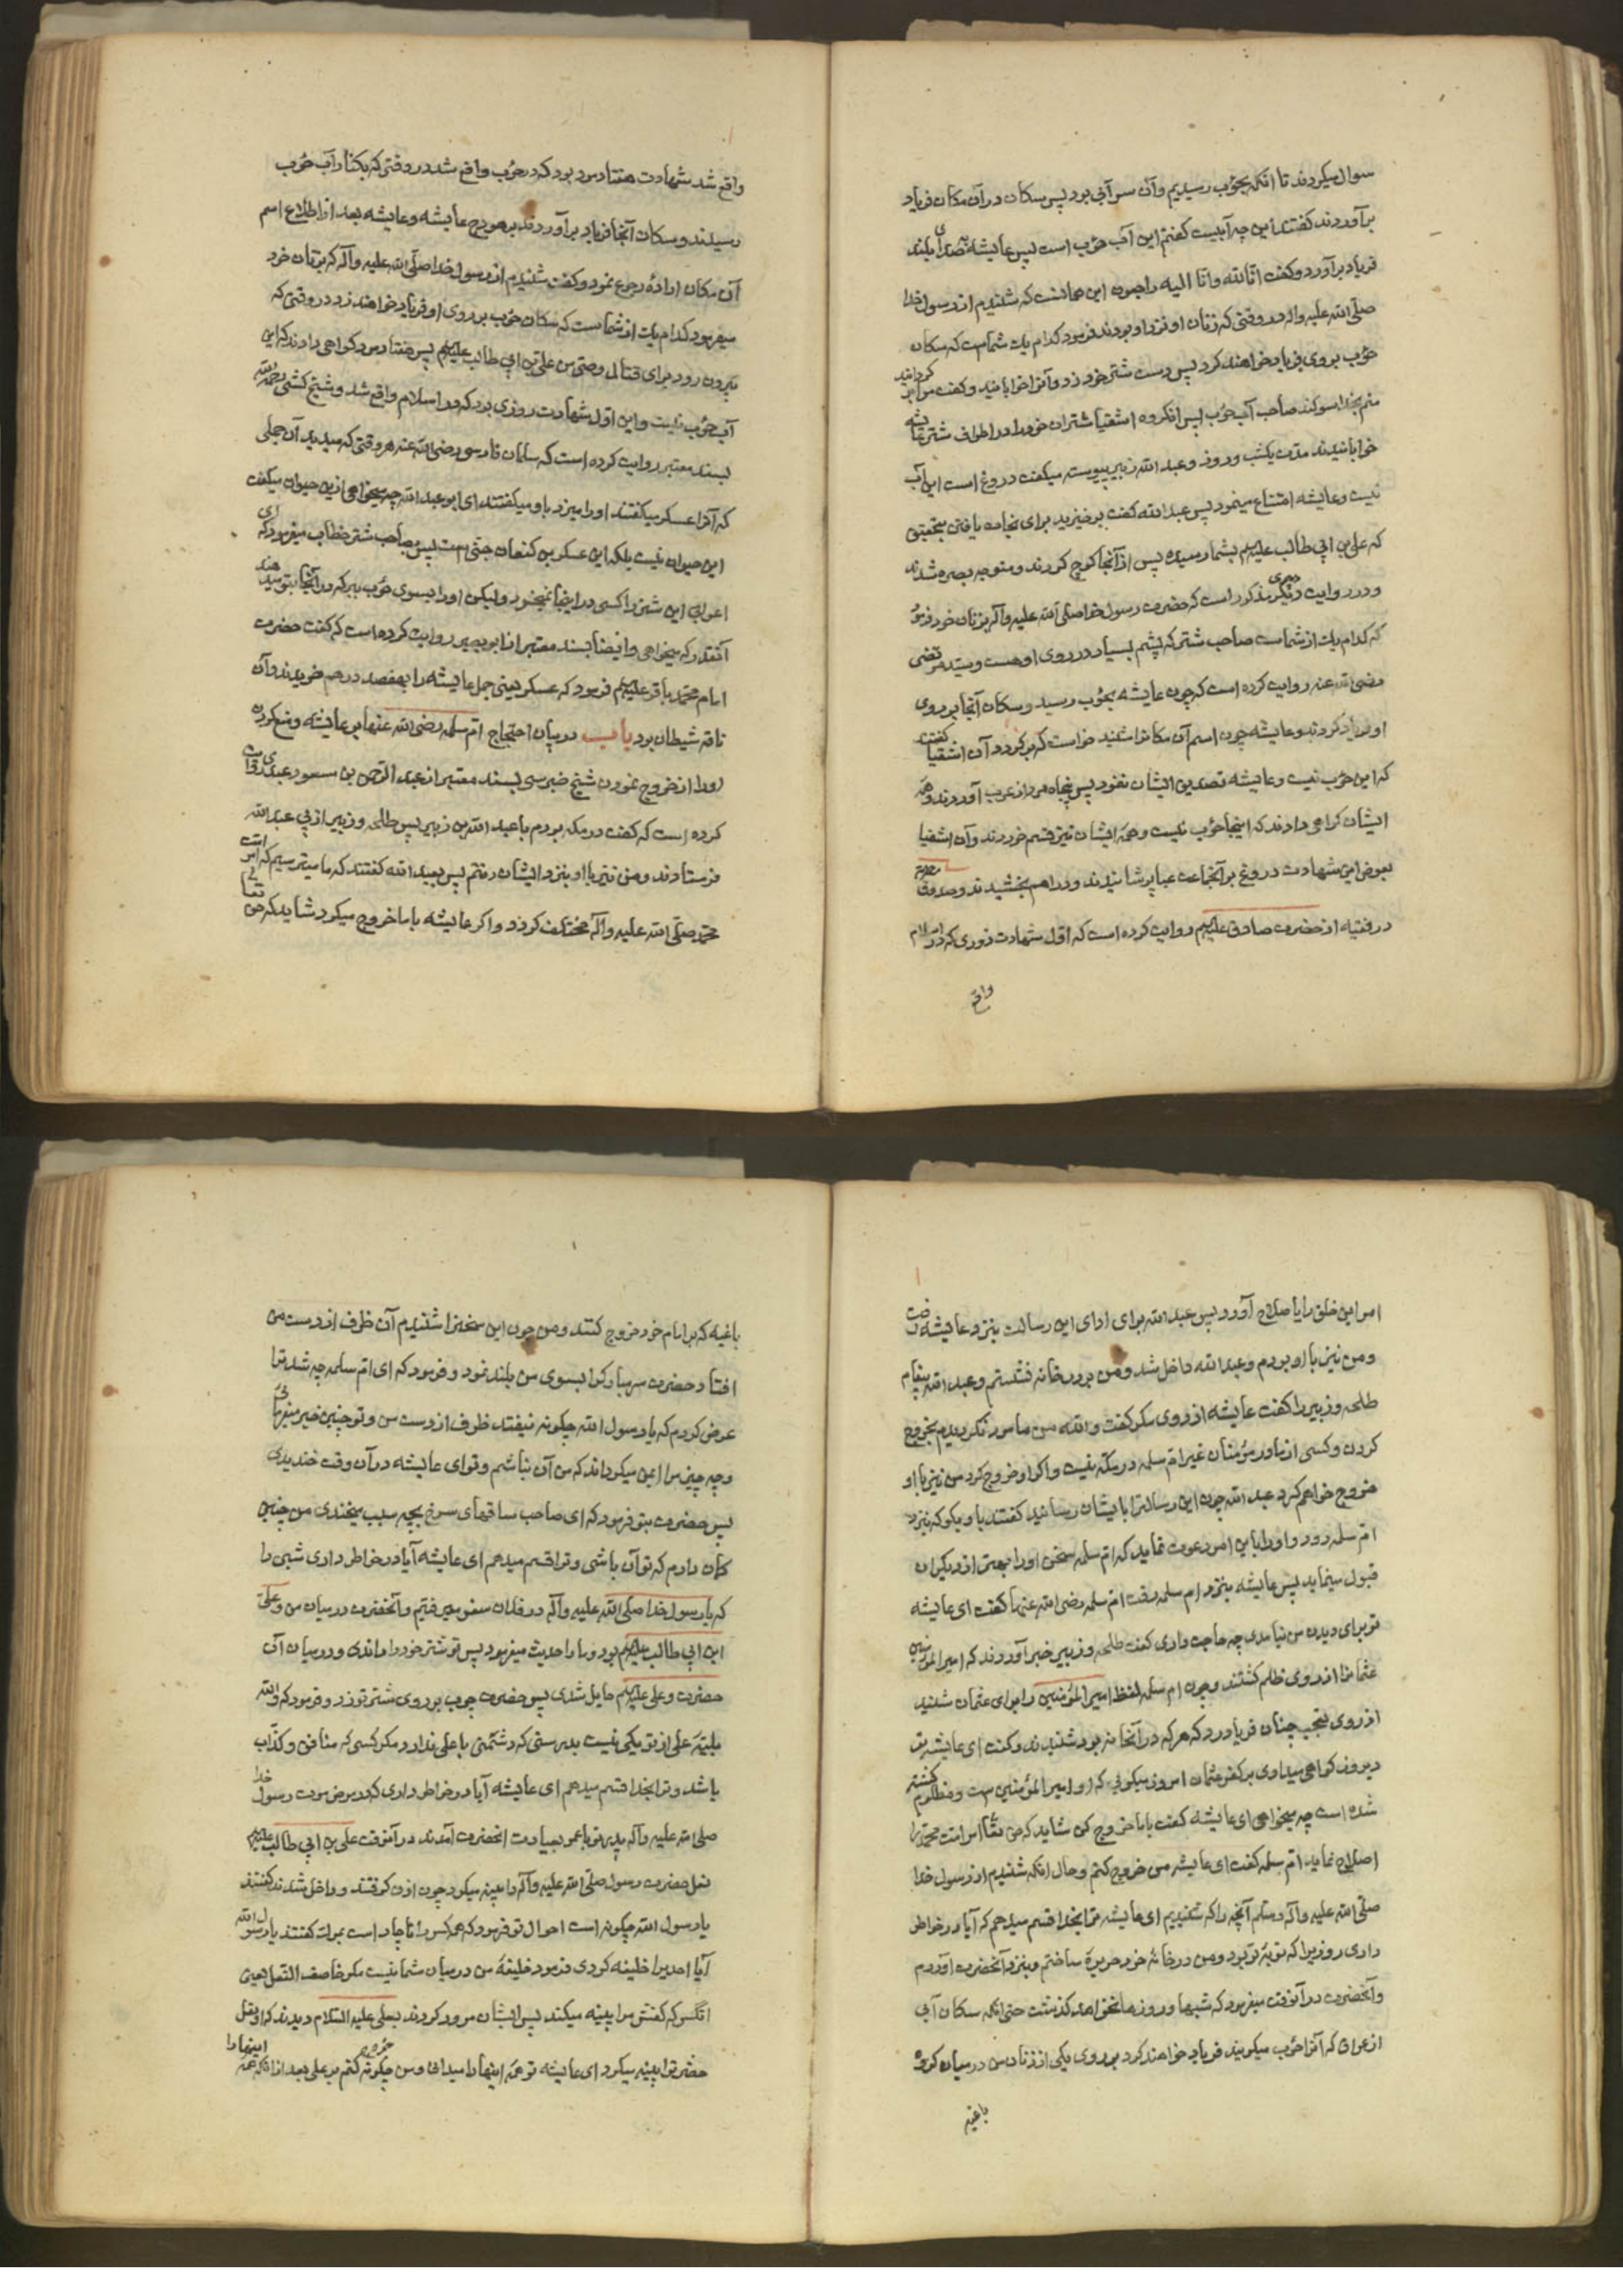 سوال میکردند تا انکه بحوب رسیدیم وآن سر آبی بود پس سکان درآن مکان فریاد
برآوردند گفتند این چه آبیست گفتم این آب حوب است پس عایشه بصدای بلند
فریاد برآورد وگفت انا لله وانا الیه راجعون این همانست که شنیدم از رسول خدا
صلی الله علیه واله در وقتی که زنان او نزد او بودند فرمود کدام یک شماست که سکان
حوب بروی فریاد خواهند کرد پس دست شتر خود زد وآنرا خوابانید وگفت مرا بر گردانید
منم بخدا سوکند صاحب آب حوب پس انکروه اشقیا شتران خود را در اطراف شتر عایشه
خوابانیدند مدت یکشب وروز وعبد الله زبیر پیوسته میگفت دروغ است این آب
نیست وعایشه امتناع مینمود پس عبد الله گفت برخیزید برای نجات یافتن بتحقیق
که علی بن ابی طالب علیه السلم بشما رسیده پس از آنجا کوچ کردند ومتوجه بصره شدند
ودر روایت دیگر مذکور است که حضرت رسول خدا صلی الله علیه وآله بزنان خود فرمود
که کدام یک از شماست صاحب شتر که پشم بسیار در روی او هست وسید مرتضی
رضی الله عنه روایت کرده است که چون عایشه بحوب رسید وسکان آنجا بر روی
او فریاد کردند وعایشه چون اسم آن مکانرا شنید خواست که برگردد آن اشقیا گفتند
که این حوب نیست وعایشه تصدیق ایشان ننمود پس پنجاه مرد از عرب آوردند وهمه
ایشان گواهی دادند که اینجا حوب نیست وهمه ایشان نیز قسم خوردند وآن اشقیا
بعوض این شهادت دروغ بر آنجماعت عبا پوشانیدند ودراهم بخشیدند وصدوق
در فقیه از حضرت صادق علیه السلم روایت کرده است که اول شهادت زوری که در اسلام
واقع
واقع شد شهادت هفتاد مرد بود که در حوب واقع شد در وقتی که بکنار آب حوب
رسیدند وسکان آنجا فریاد برآوردند بر هودج عایشه وعایشه بعد از اطلاع اسم
آن مکان ارادۀ رجوع نمود وگفت شنیدم از رسول خدا صلی الله علیه وآله که بزنان خود
میفرمود کدام یک از شماست که سکان حوب بر روی او فریاد خواهند زد در وقتی که
بیرون رود برای قتال وصی من علی بن ابی طالب علیه السلم پس هفتاد مرد گواهی دادند که این
آب حوب نیست واین اول شهادت زوری بود که در اسلام واقع شد وشیخ کشی رحمه الله
بسند معتبر روایت کرده است که سلمان فارسی رضی الله عنه هر وقتی که میدید آن جملی
که آنرا عسکر میگفتند اورا میزد باو میگفتند ای ابو عبد الله چه میخواهی ازین حیوان میگفت
این حیوان نیست بلکه این عسکر بن کنعان جنی است پس بصاحب شتر خطاب میفرمود که ای
اعرابی این شتر را کسی در اینجا نمیخرد ولیکن اورا بسوی حوب ببر که در آنجا بتو میدهند
آنقدر که میخواهی وایضا بسند معتبر از ابو بصیر روایت کرده است که گفت حضرت
امام محمد باقر علیه السلم فرمود که عسکر یعنی جمل عایشه را بهفصد درهم خریدند وآن
ناقه شیطان بود باب در بیان احتجاج ام سلمه رضی الله عنها بر عایشه ومنع کردن
اورا از خروج نمودن شیخ طبرسی بسند معتبر از عبد الرحمن بن مسعود عبدی روایت
کرده است که گفت در مکه بودم با عبد الله بن زبیر پس طلحه وزبیر از پی عبد الله
فرستادند ومن نیز با او بنزد ایشان رفتم پس بعبد الله گفتند که ما میترسیم که امر امت
محمد صلی الله علیه وآله مختلف گردد واگر عایشه با ما خروج میکرد شاید که حق تعالی
امر این خلق را باصلاح آورد پس عبد الله برای ادای این رسالت بنزد عایشه رفت
ومن نیز با او بودم وعبد الله داخل شد ومن بر در خانه نشستم وعبد الله پیغام
طلحه وزبیر را گفت عایشه از روی مکر گفت والله من مامور نگردیدم بخروج
کردن وکسی از مادر مؤمنان غیر ام سلمه در مکه نیست واگر او خروج کرد من نیز با او
خروج خواهم کرد عبد الله چون این رسالترا بایشان رسانید گفتند باو بگو که بنزد
ام سلمه رود واورا باین امر دعوت نماید که ام سلمه سخن اورا بهتر از دیگران
قبول مینماید پس عایشه بنزد ام سلمه رفت ام سلمه رضی الله عنها گفت ای عایشه
تو برای دیدن من نیامدی چه حاجت داری گفت طلحه وزبیر خبر آوردند که امیر المؤمنین
عثمانرا از روی ظلم کشتند وچون ام سلمه لفظ امیر المؤمنین را برای عثمان شنید
از روی تعجب چنان فریاد زد که هر که در آنخانه بود شنیدند وگفت ای عایشه تو
دیروز گواهی میدادی بر کفر عثمان امروز میگویی که او امیر المؤمنین است ومظلوم کشته
شده است چه میخواهی ای عایشه گفت با ما خروج کن شاید که حق تعا امر امت محمد را
اصلاح نماید ام سلمه گفت ای عایشه من خروج کنم وحال انکه شنیدیم از رسول خدا
صلی الله علیه وآله وسلم آنچه را که شنیدیم ای عایشه ترا بخدا قسم میدهم که آیا در خاطر
داری روزیرا که نوبۀ تو بود ومن در خانۀ خود حریرۀ ساختم وبنزد آنحضرت آوردم
وآنحضرت در آنوقت میفرمود که شبها وروزها نخواهد گذشت حتی انکه سکان آبی
از عراق که آنرا حوب میگویند فریاد خواهند کرد بر روی یکی از زنان من در میان گروه
باغیه
باغیه که بر امام خود خروج کنند ومن چون این سخنرا شنیدم آن ظرف از دست من
افتاد حضرت سر مبارکرا بسوی من بلند نمود وفرمود که ای ام سلمه چه شد ترا
عرض کردم که یا رسول الله چگونه نیفتد ظرف از دست من وتو چنین خبر میفرمائی
وچه چیز مرا ایمن میگرداند که من آن نباشم وتو ای عایشه در آن وقت خندیدی
پس حضرت بتو فرمود که ای صاحب ساقهای سرخ بچه سبب میخندی من چنین
گمان دارم که تو آن باشی وترا قسم میدهم ای عایشه آیا در خاطر داری شبی را
که با رسول خدا صلی الله علیه وآله در فلان سفر میرفتیم وآنحضرت در میان من وعلی
ابن ابی طالب علیه السلم بود وما را حدیث میفرمود پس تو شتر خود را راندی ودر میان آن
حضرت وعلی علیه السلم حایل شدی پس حضرت چوب بر روی شتر تو زد وفرمود که والله
بلیۀ علی از تو یکی نیست بدرستی که دشمنی با علی ندارد مگر کسی که منافق وکذاب
باشد وترا بخدا قسم میدهم ای عایشه آیا در خاطر داری که در مرض موت رسول خدا
صلی الله علیه وآله پدر تو با عمر بعیادت انحضرت آمدند در آنوقت علی بن ابی طالب علیه السلم
نعل حضرت رسول صلی الله علیه وآله را پینه میکرد چون اذن گرفتند وداخل شدند گفتند
یا رسول الله چگونه است احوال تو فرمود که همه کس را ناچار است بمرگ گفتند یا رسول الله
آیا احدیرا خلیفه کردی فرمود خلیفۀ من در میان شما نیست مگر خاصف النعل یعنی
انکس که کفش مرا پینه میکند پس ایشان مرور کردند بعلی علیه السلام دیدند که او نعل
حضرترا پینه میکرد ای عایشه تو همه اینها را میدانی ومن چگونه خروج کنم بر علی بعد از انکه همه اینها را